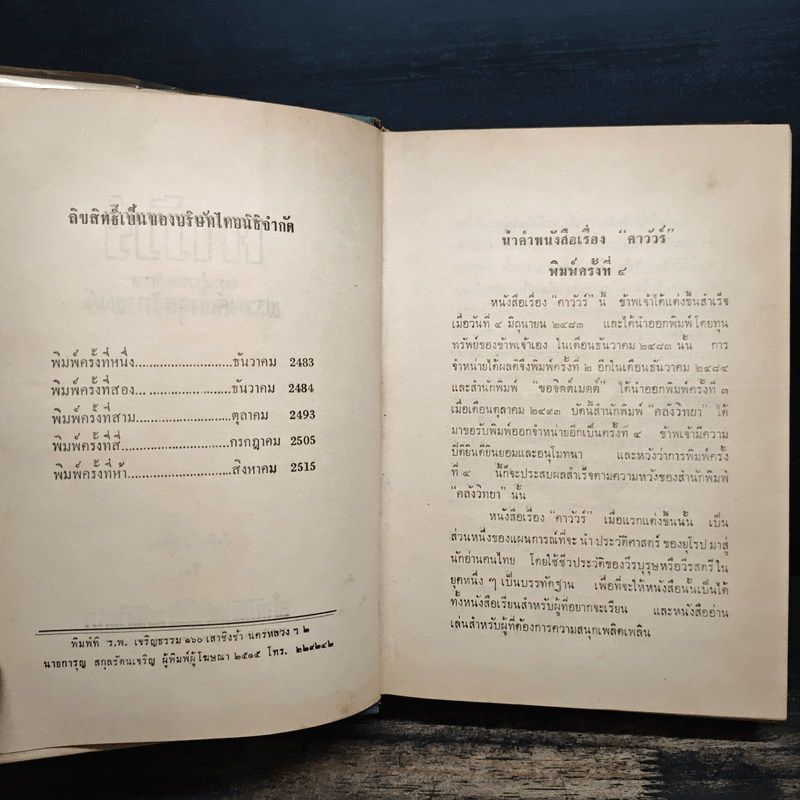 ลิขสิทธิ์เป็นของบริษัทไทยนิธิจำกัด
พิมพ์ครั้งที่หนึ่ง............................ธันวาคม 2483
พิมพ์ครั้งที่สอง............................ธันวาคม 2484
พิมพ์ครั้งที่สาม............................ตุลาคม 2493
พิมพ์ครั้งที่สี่............................กรกฎาคม 2505
พิมพ์ครั้งที่ห้า............................สิงหาคม 2515
พิมพ์ที่ ร.พ. เจริญธรรม ๑๖๐ เสาชิงช้า นครหลวง ฯ ๒
นายการุญ สกุลรัตนเจริญ ผู้พิมพ์ผู้โฆษณา ๒๕๑๕ โทร. ๒๒๙๒๔๒
นำคำหนังสือเรื่อง “คาวัวร์”
พิมพ์ครั้งที่ ๔
หนังสือเรื่อง “คาวัวร์” นี้ ข้าพเจ้าได้แต่งขึ้นสำเร็จ
เมื่อวันที่ ๔ มิถุนายน ๒๔๘๓ และได้นำออกพิมพ์ โดยทุน
ทรัพย์ของข้าพเจ้าเอง ในเดือนธันวาคม ๒๔๘๓ นั้น การ
จำหน่ายได้ผลดีจึงพิมพ์ครั้งที่ ๒ อีกในเดือนธันวาคม ๒๔๘๔
และสำนักพิมพ์ “ขอจิตต์เมตต์” ได้นำออกพิมพ์ครั้งที่ ๓
เมื่อเดือนตุลาคม ๒๔๙๓ บัดนี้สำนักพิมพ์ “คลังวิทยา” ได้
มาขอรับพิมพ์ออกจำหน่ายอีกเป็นครั้งที่ ๔ ข้าพเจ้ามีความ
ปีติยินดียินยอมและอนุโมทนา และหวังว่าการพิมพ์ครั้ง
ที่ ๔ นี้ก็จะประสบผลสำเร็จตามความหวังของสำนักพิมพ์
“คลังวิทยา” นั้น
หนังสือเรื่อง “คาวัวร์” เมื่อแรกแต่งขึ้นนั้น เป็น
ส่วนหนึ่งของแผนการณ์ที่จะ นำ ประวัติศาสตร์ ของยุโรป มาสู่
นักอ่านคนไทย โดยใช้ชีวประวัติของวีรบุรุษหรือวีรสตรี ใน
ยุคหนึ่ง ๆ เป็นบรรทัดฐาน เพื่อที่จะให้หนังสือนั้นเป็นได้
ทั้งหนังสือเรียนสำหรับผู้ที่อยากจะเรียน และหนังสืออ่าน
เล่นสำหรับผู้ที่ต้องการความสนุกเพลิดเพลิน